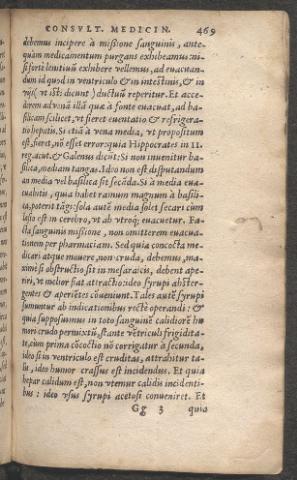 CONSVLT. MEDICIN. 469
debemus incipere à missione sanguinis, ante-
quàm medicamentum purgans exhibeamus: ni-
si forte lenitiuũ exhibere vellemus, ad euacuan-
dum id quod in ventriculo & in intestinis, & in
vijs( vt isti dicunt ) ductuũ reperitur. Et acce-
derem ad vnã illã quæ à fonte euacuat, ad ba-
silicam scilicet, vt fieret euentatio & refrigera-
tio hepatis. Si etiã à vena media, vt propositum
est, fieret, nõ esset error: quia Hippocrates in 11.
reg. acut. & Galenus dicũt: Si non inuenitur ba-
silica, mediam tangas. Ideo non est disputandum
an media vel basilica sit secãda. Si à media eua-
cuabitis, quia habet ramum magnum à basili-
ca, poterit tãgi: sola autẽ media solet secari cum
læsio est in cerebro, vt ab vtroq; euacuetur. Fa-
cta sanguinis missione, non omitterem euacua-
tionem per pharmaciam. Sed quia concocta me-
dicari atque mouere, non cruda, debemus, ma-
ximè si obstructio sit in mesaraicis, debent ape-
riri, vt melior fiat attractio: ideo syrupi abster-
gentes & aperiẽtes cõueniunt. Tales autẽ syrupi
sumuntur ab indicationibus rectè operandi: &
quia supposuimus in toto sanguinẽ calidiorẽ hu
mori crudo permixtũ, stante vẽtriculi frigidita-
te, cùm prima cõcoctio nõ corrigatur à secunda,
ideo si in ventriculo est cruditas, attrahitur ta-
lis, ideo humor crassus est incidendus. Et quia
hepar calidum est, non vtemur calidis incidenti-
bus: ideo vsus syrupi acetosi conueniret. Et
Gg 3 quia